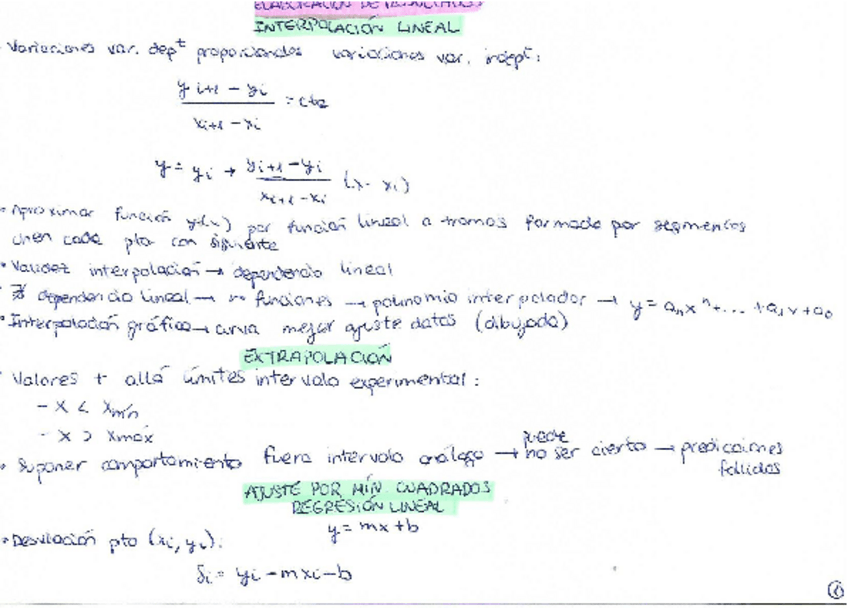 ELABORACIÓN DE RESULTADOS
INTERPOLACIÓN LINEAL
Variaciones var. dep^t proporcionales variaciones var. indep^t:
(y_{i+1} - y_i) / (x_{i+1} - x_i) = cte
y = y_i + (y_{i+1} - y_i) / (x_{i+1} - x_i) (x - x_i)
• Aproximar función y(x) por función lineal a tramos formada por segmentos
unen cada pto con siguiente
• Validez interpolación → dependencia lineal
• ∄ dependencia lineal → funciones → polinomio interpolador → y = a_n x^n + ... + a_1 x + a_0
• Interpolación gráfica → curva mejor ajuste datos (dibujada)
EXTRAPOLACIÓN
Valores + allá límites intervalo experimental:
- x < x_mín
- x > x_máx
• Suponer comportamiento fuera intervalo análogo → puede no ser cierto → predicciones
fallidas
AJUSTE POR MÍN. CUADRADOS
REGRESIÓN LINEAL
y = mx + b
• Desviación pto (x_i, y_i):
δ_i = y_i - mx_i - b
①